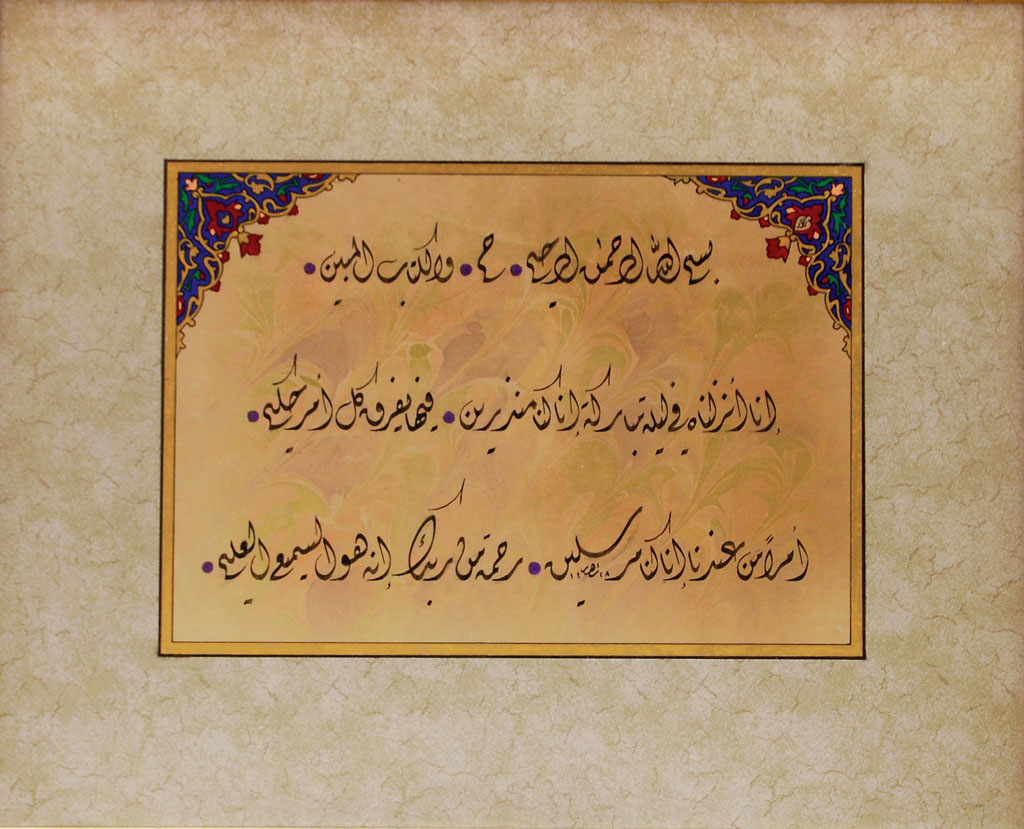 بسم الله الرحمن الرحيم • حم • والكتاب المبين •
إنا أنزلناه في ليلة مباركة إنا كنا منذرين • فيها يفرق كل أمر حكيم •
أمرًا من عندنا إنا كنا مرسلين • رحمة من ربك إنه هو السميع العليم •